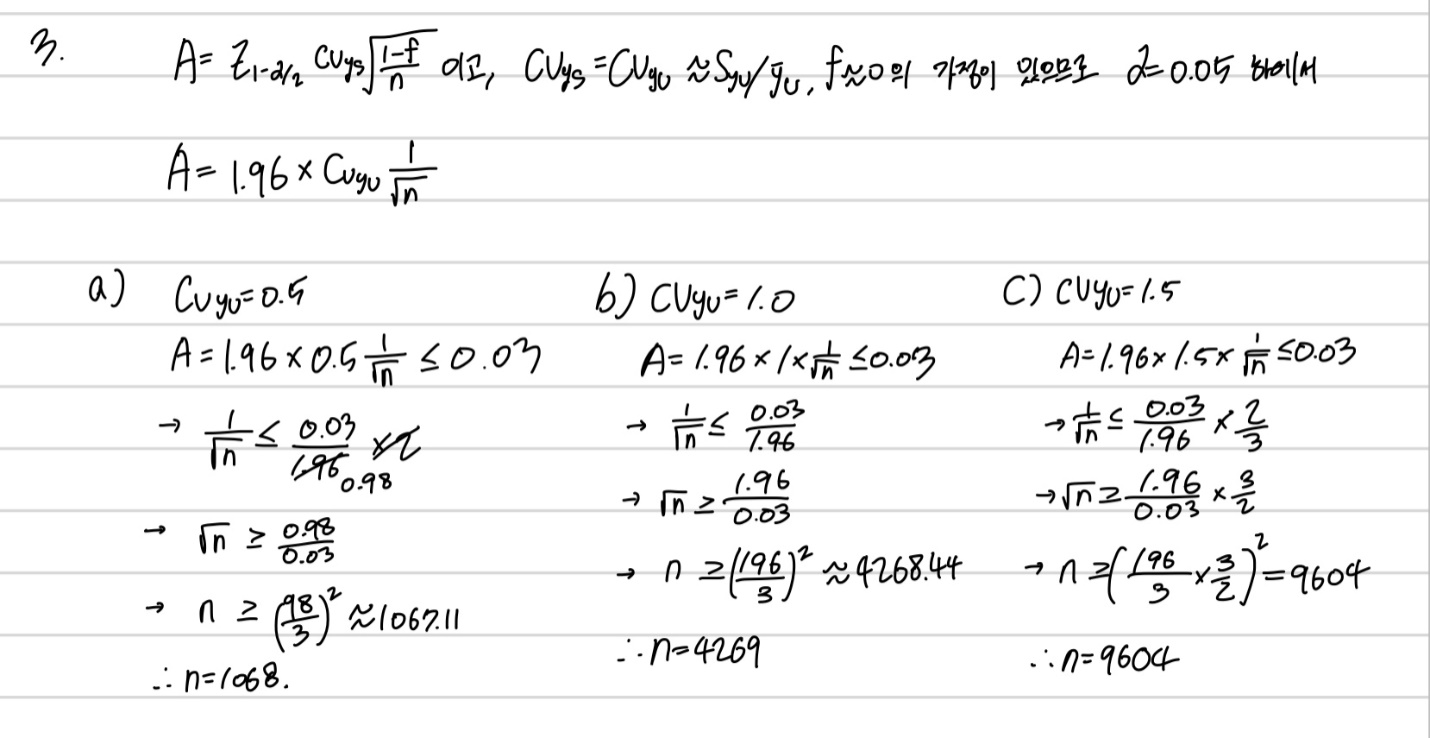 3. A = Z_{1-α/2} CV_{ys} √((1-f)/n) 이고, CV_{ys} = CV_{yU} ≈ S_{yU}/ȳ_U, f≈0의 가정이 있으므로 α=0.05 하에서
A = 1.96 × CV_{yU} 1/√n
a) CV_{yU} = 0.5
A = 1.96 × 0.5 1/√n ≤ 0.03
→ 1/√n ≤ 0.03/0.98
→ √n ≥ 0.98/0.03
→ n ≥ (98/3)² ≈ 1067.11
∴ n = 1068.
b) CV_{yU} = 1.0
A = 1.96 × 1 × 1/√n ≤ 0.03
→ 1/√n ≤ 0.03/1.96
→ √n ≥ 1.96/0.03
→ n ≥ (196/3)² ≈ 4268.44
∴ n = 4269
C) CV_{yU} = 1.5
A = 1.96 × 1.5 × 1/√n ≤ 0.03
→ 1/√n ≤ 0.03/1.96 × 2/3
→ √n ≥ 1.96/0.03 × 3/2
→ n ≥ (196/3 × 3/2)² = 9604
∴ n = 9604